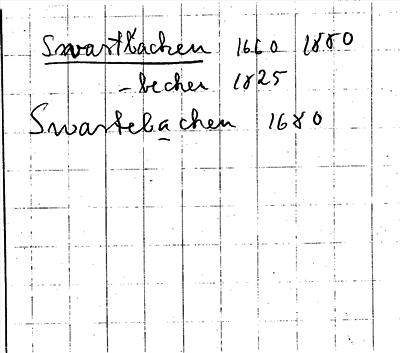 Swartbachen 1660 1880
- becher 1825
Swartebachen 1680